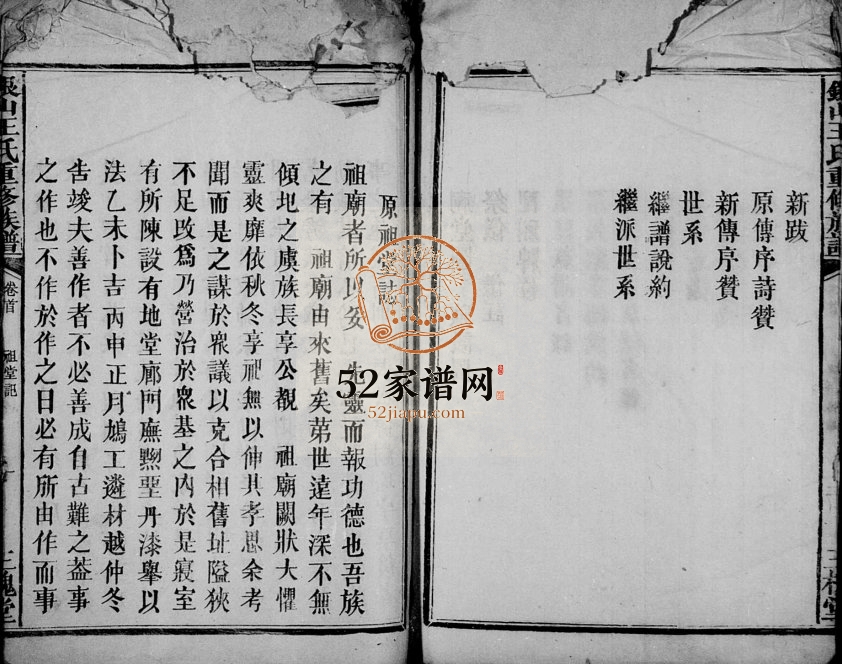 新跋
原傳序詩贊
新傳序贊
世系
繼譜說約
繼派世系
原祖堂誌
祖廟者所以妥 先靈而報功德也吾族
之有 祖廟由來舊矣第世遠年深不無
傾圮之虞族長享公覩 祖廟闕狀大懼
靈爽靡依秋冬享祀無以伸其孝思余考
聞而是之謀於衆議以克合相舊址隘狹
不足改爲乃營治於衆基之內於是寢室
有所陳設有地堂廊門廡黝堊丹漆舉以
法乙未卜吉丙申正月鳩工遴材越仲冬
告竣夫善作者不必善成自古難之葢事
之作也不作於作之日必有所由作而事
銀山王氏重修族譜
卷首
祖堂記
三槐堂
銀山王氏重修族譜
三槐堂
52家谱网
52jiapu.com